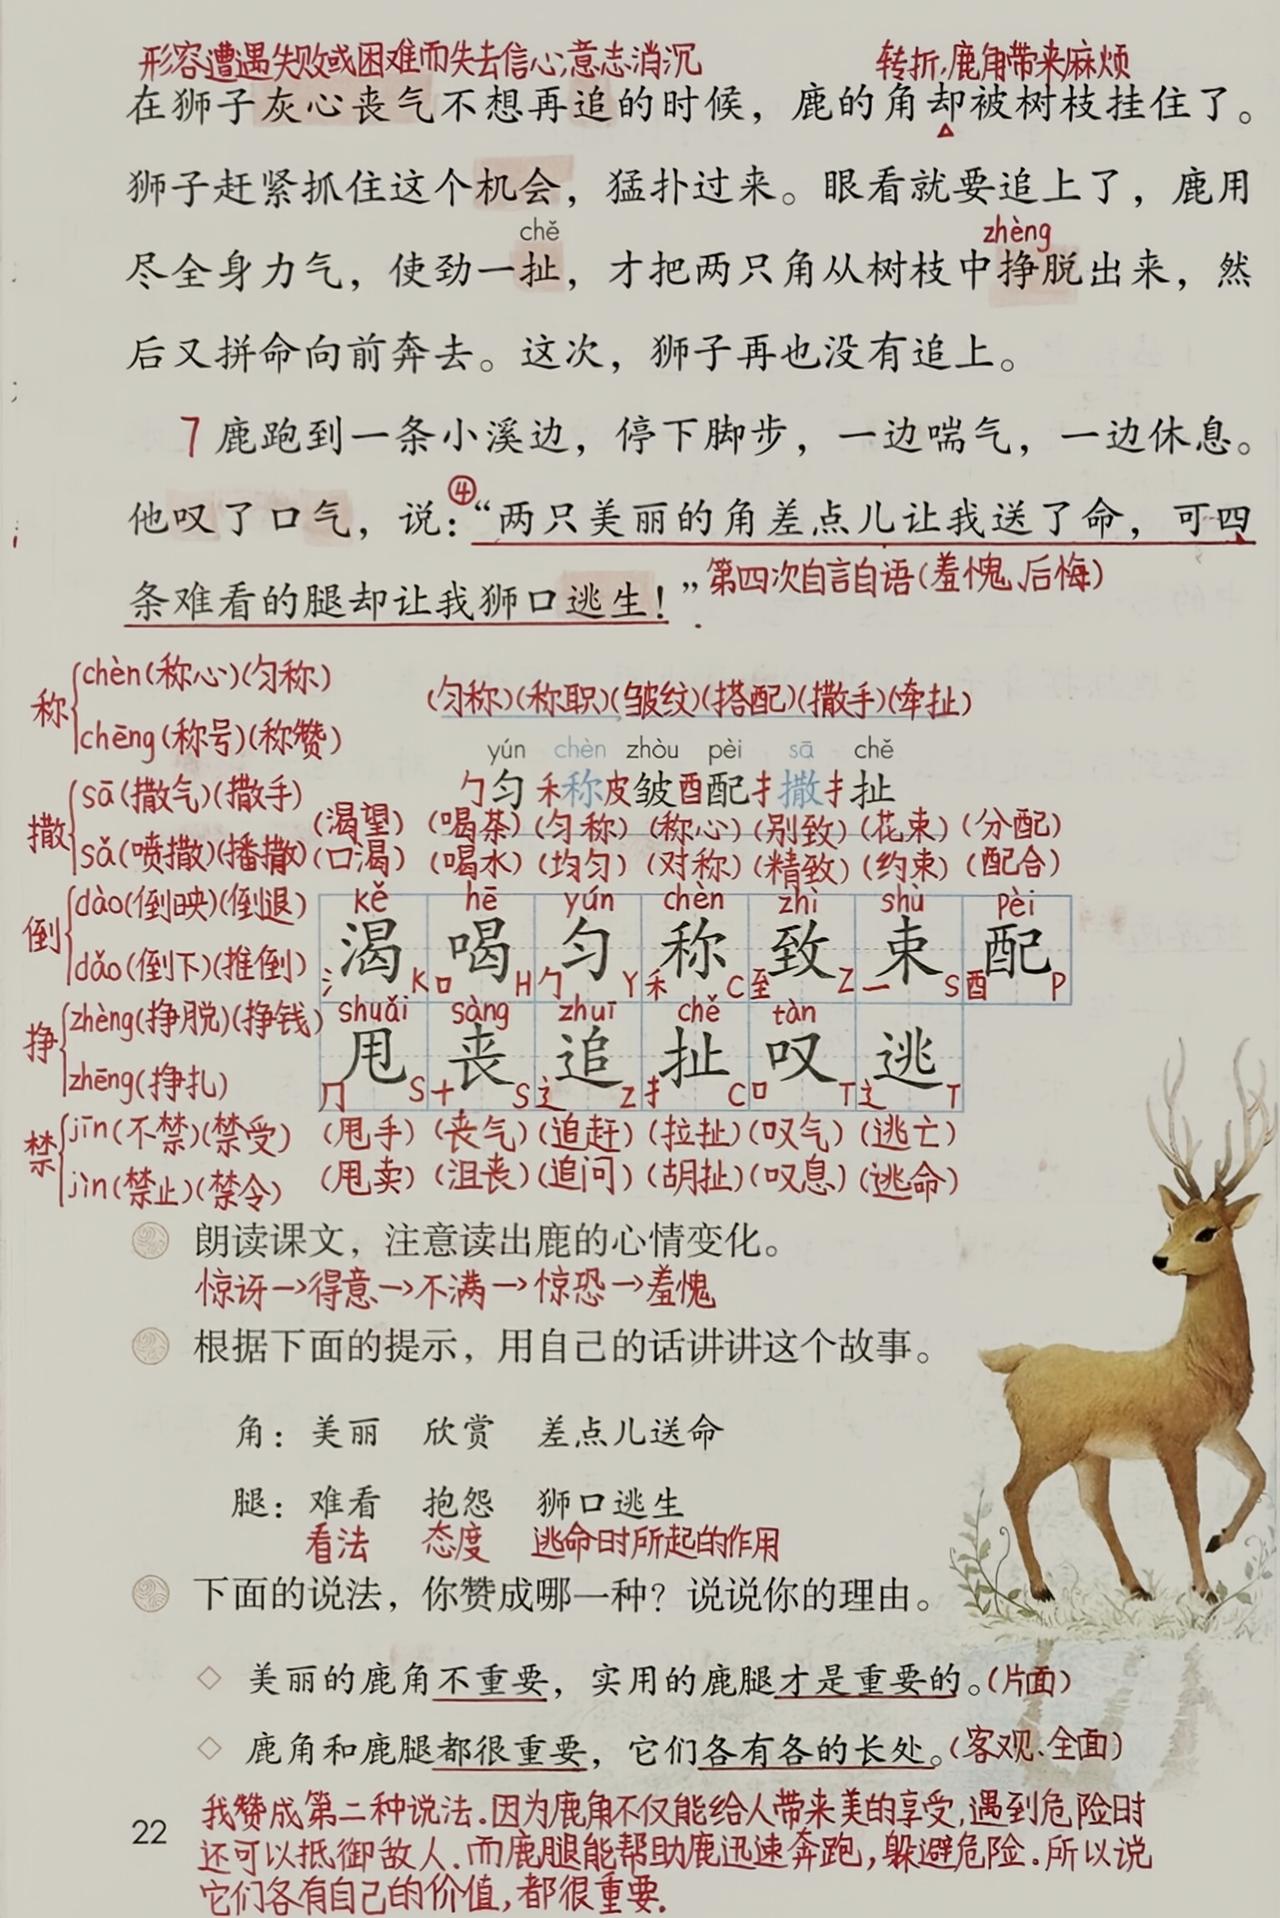 形容遭遇失败或困难而失去信心,意志消沉 转折,鹿角带来麻烦
在狮子灰心丧气不想再追的时候，鹿的角却被树枝挂住了。
狮子赶紧抓住这个机会，猛扑过来。眼看就要追上了，鹿用
chě zhèng
尽全身力气，使劲一扯，才把两只角从树枝中挣脱出来，然
后又拼命向前奔去。这次，狮子再也没有追上。
7 鹿跑到一条小溪边，停下脚步，一边喘气，一边休息。
④
他叹了口气，说：“两只美丽的角差点儿让我送了命，可四
条难看的腿却让我狮口逃生！”第四次自言自语(羞愧、后悔)
称 chèn(称心)(匀称)
chēng(称号)(称赞)
(匀称)(称职)(皱纹)(搭配)(撒手)(牵扯)
yún chèn zhòu pèi sā chě
勹匀 禾称 皮皱 酉配 扌撒 扌扯
撒 sā(撒气)(撒手)
sǎ(喷撒)(播撒)
(渴望) (喝茶) (匀称) (称心) (别致) (花束) (分配)
(口渴) (喝水) (均匀) (对称) (精致) (约束) (配合)
倒 dào(倒映)(倒退)
dǎo(倒下)(推倒)
kě hē yún chèn zhì shù pèi
渴 喝 匀 称 致 束 配
氵 K 口 H 勹 Y 禾 C 至 Z 一 S 酉 P
挣 zhèng(挣脱)(挣钱)
zhēng(挣扎)
shuǎi sàng zhuī chě tàn
甩 丧 追 扯 叹 逃
冂 S 十 S 辶 Z 扌 C 口 T 辶 T
禁 jīn(不禁)(禁受)
jìn(禁止)(禁令)
(甩手) (丧气) (追赶) (拉扯) (叹气) (逃亡)
(甩卖) (沮丧) (追问) (胡扯) (叹息) (逃命)
朗读课文，注意读出鹿的心情变化。
惊讶→得意→不满→惊恐→羞愧
根据下面的提示，用自己的话讲讲这个故事。
角：美丽 欣赏 差点儿送命
腿：难看 抱怨 狮口逃生
看法 态度 逃命时所起的作用
下面的说法，你赞成哪一种？说说你的理由。
◇ 美丽的鹿角不重要，实用的鹿腿才是重要的。(片面)
◇ 鹿角和鹿腿都很重要，它们各有各的长处。(客观、全面)
我赞成第二种说法.因为鹿角不仅能给人带来美的享受,遇到危险时
22 还可以抵御敌人.而鹿腿能帮助鹿迅速奔跑,躲避危险.所以说
它们各有自己的价值,都很重要.